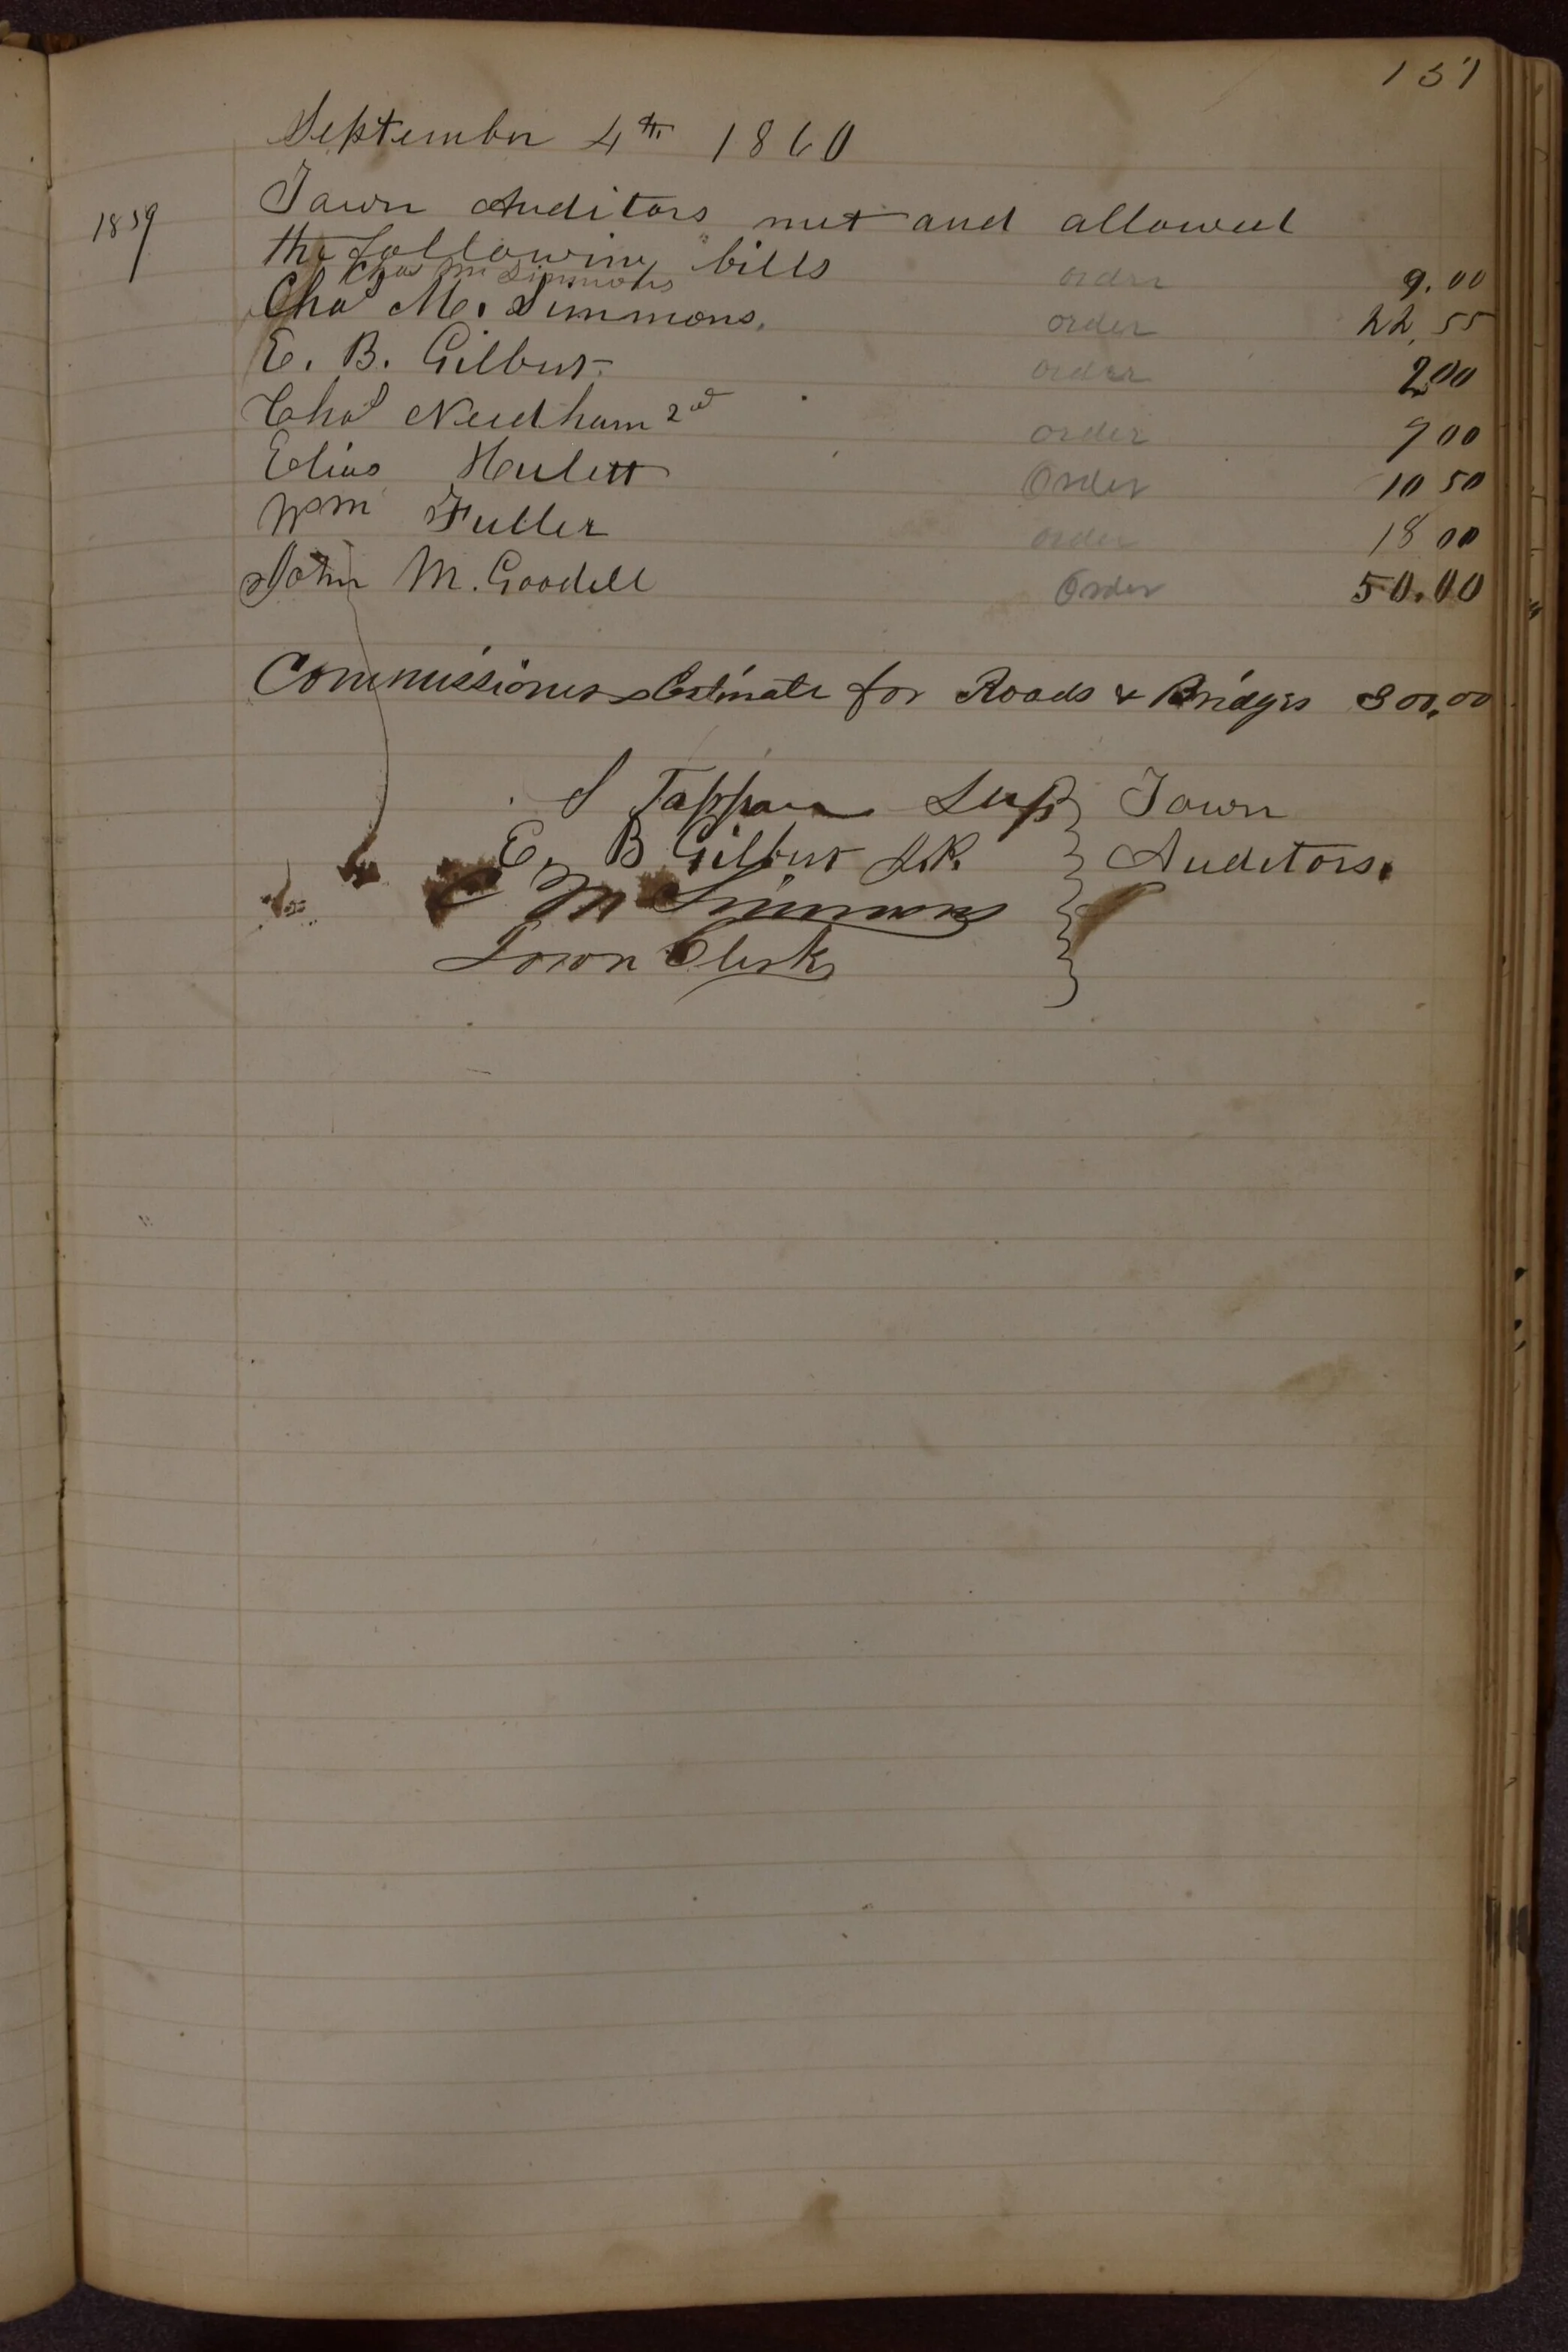 137
September 4th 1860
1859
Town Auditors met and allowed
the following bills
Chas M Simmons order 9.00
Chas M. Simmons. order 22.55
E. B. Gilbert order 2.00
Chas Needham 2nd order 9 00
Elias Hulett Order 10 50
Wm Fuller order 18 00
John M. Goodell Order 50.00
Commissioners Estimate for Roads & Bridges 300,00
S Tappan Sup Town
E. B Gilbert Auditors.
C M Simmons
Town Clerk